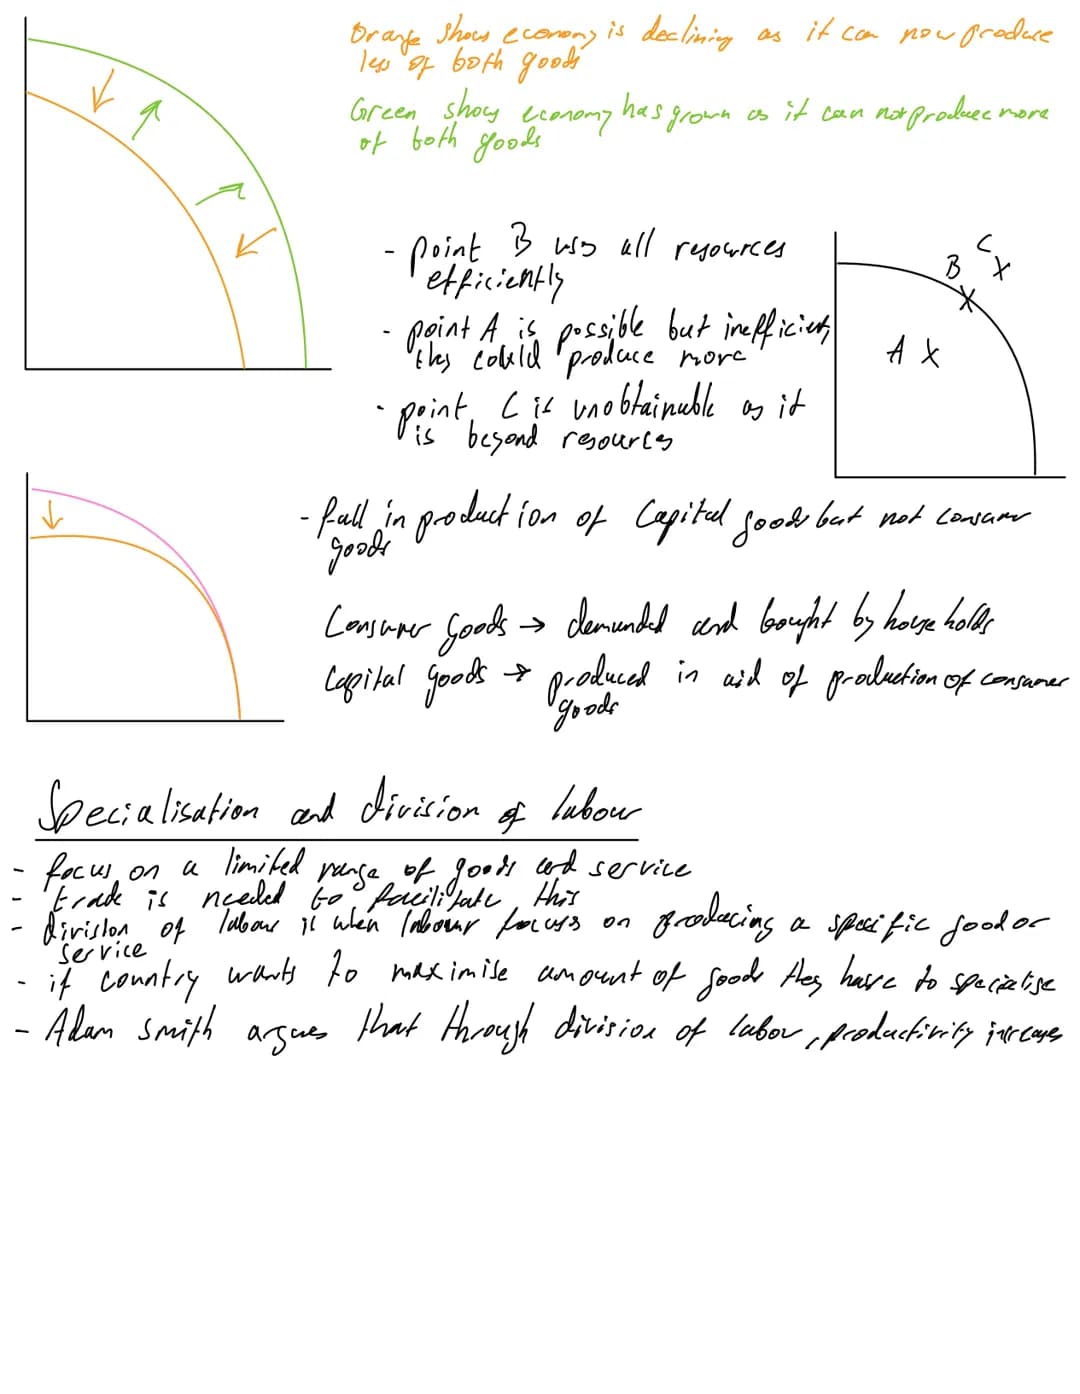 Orange shows economy is declining as it can now produce
less of both goods
Green shows economy has grown as it can not produce more
of both goods
- point B uses all resources
efficiently
- point A is possible but inefficient,
they could produce more
- point C is unobtainable as it
is beyond resources
C
B
A
- fall in production of Capital goods but not consumer
goods
Consumer goods → demanded and bought by households
Capital goods → produced in aid of production of consumer
goods
Specialisation and division of labour
- focus on a limited range of goods and service
- trade is needed to facilitate this
- division of labour is when labour focuses on producing a specific good or
service
- if country wants to maximise amount of goods they have to specialise
- Adam Smith argues that through division of labor, productivity increases